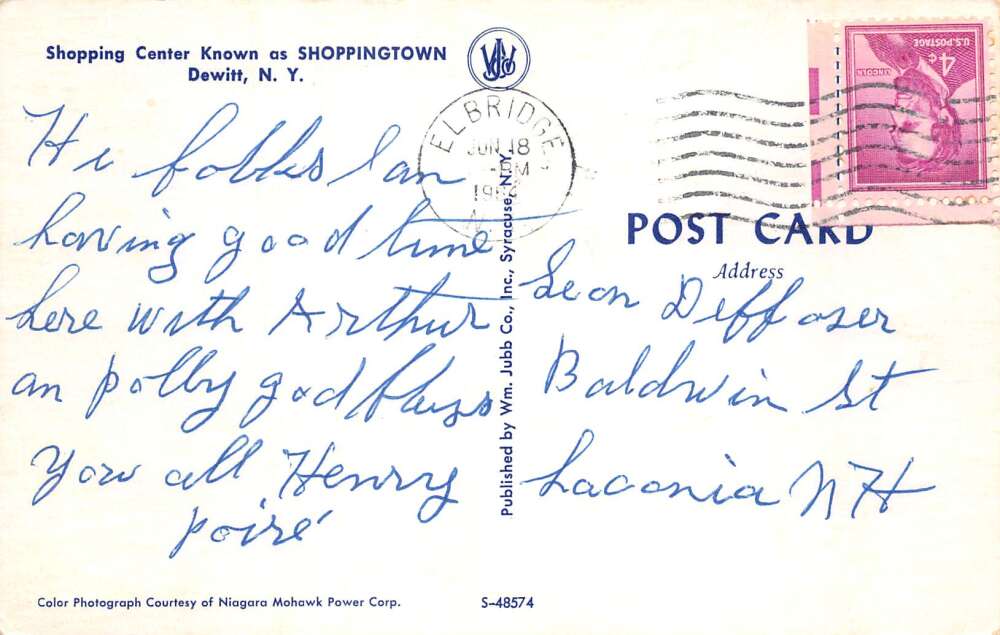 Shopping Center Known as SHOPPINGTOWN
Dewitt, N. Y.
Hi folks I an
having good time
here with Arthur
an polly god bless
you all Henry
poiré
Color Photograph Courtesy of Niagara Mohawk Power Corp.
S-48574
Published by Wm. Jubb Co., Inc., Syracuse, N. Y.
ELBRIDGE
JUN 18
PM
U.S. POSTAGE
4¢
LINCOLN
POST CARD
Address
Leon Deffoser
Baldwin St
Laconia NH